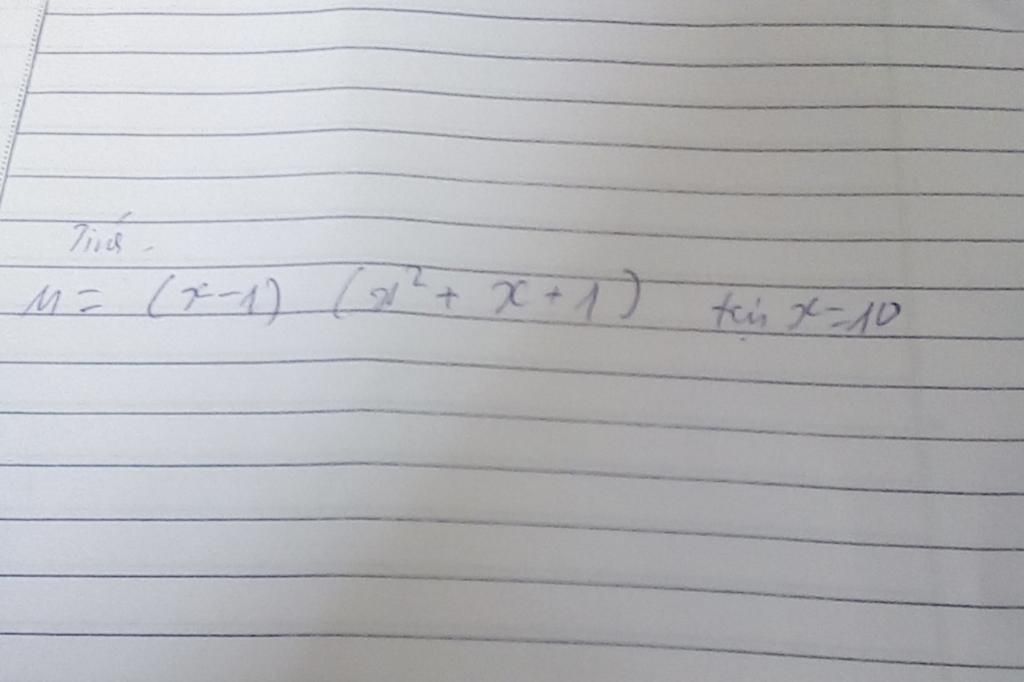 Tính
M = (x-1) (x² + x + 1) tại x=10